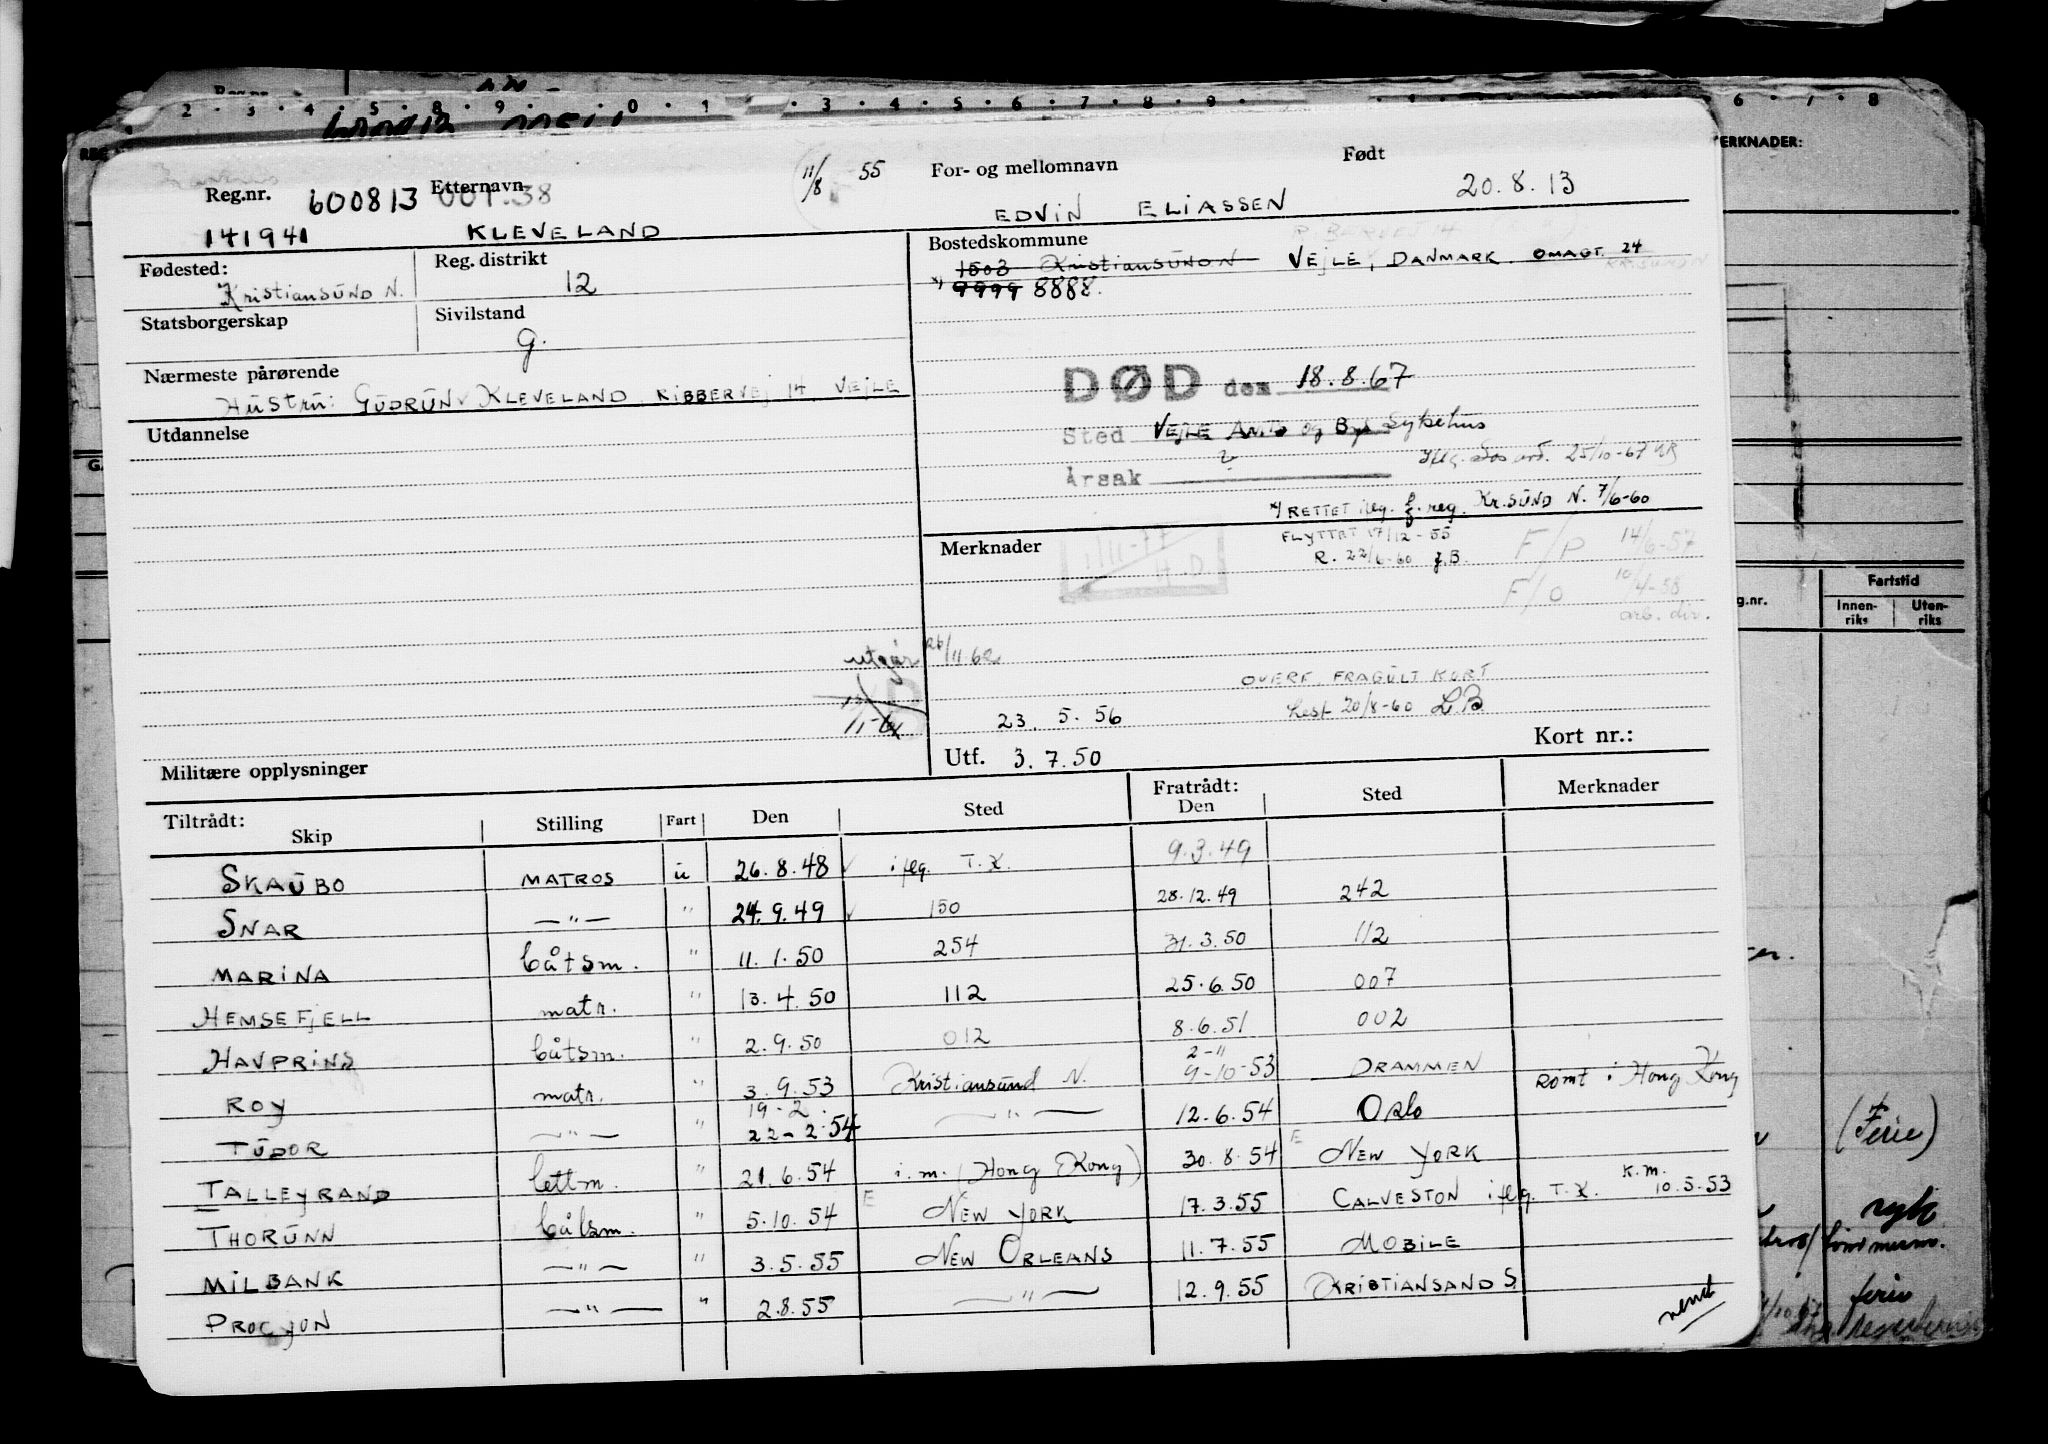 2 . 3 . 4 . 5 . 8 . 9 . 0 . 1 . 3 . 4 . 5 . 6 . 7 . 8 . 9 . 6 . 7 . 8
ERKNADER:
Reg.nr. 600813 Etternavn 001.38 11/8 55 For- og mellomnavn Født
141941 KLEVELAND EDVIN ELIASSEN 20.8.13
Fødested: Reg. distrikt Bostedskommune
Kristiansund N. 12 1503 Kristiansund N VEJLE, DANMARK. OMAGT. 24
9999 8888.
Statsborgerskap Sivilstand
G.
Nærmeste pårørende
Hustru: GUDRUN KLEVELAND, RIBBERVEJ 14, VEJLE
DØD den 18.8.67
Utdannelse
Sted VEJLE Amts og By Sykehus
Årsak ? 25/10-67
RETTET iflg. f.reg. KR.SUND N. 7/6-60
Merknader FLYTTET 17/12-55 F/P 14/6-57
R. 22/6-60 f.B.
F/O 10/4-58
arb. div.
utgår 26/11-62
OVERF. FRA GULT KORT
Lest 20/8-60 LB
23. 5. 56
Utf. 3.7.50 Kort nr.:
Militære opplysninger
Tiltrådt: Skip Stilling Fart Den Sted Fratrådt: Den Sted Merknader
SKAUBO MATROS u 26.8.48 iflg. T.K. 9.3.49
SNAR —"— " 24.9.49 150 28.12.49 242
MARINA båtsm. " 11.1.50 254 31.3.50 112
HEMSEFJELL matr. " 13.4.50 112 25.6.50 007
HAVPRINS båtsm. " 2.9.50 012 8.6.51 002
ROY matr. " 3.9.53 Kristiansund N. 2-" 9-10-53 DRAMMEN Rømt i Hong Kong
TUDOR —"— " 19-2. 22-2.54 —"— 12.6.54 Oslo
TALLEYRAND lettm. " 21.6.54 i.m. (Hong Kong) 30.8.54 E NEW YORK
THORUNN båtsm. " 5.10.54 E NEW YORK 17.3.55 CALVESTON iflg. T.K. K.M. 10.5.53
MILBANK —"— " 3.5.55 NEW ORLEANS 11.7.55 MOBILE
PROCYON —"— " 2.8.55 —"— 12.9.55 KRISTIANSAND S.
vend
g.nr. Fartstid
Innenriks Utenriks
(Ferie)
ferie